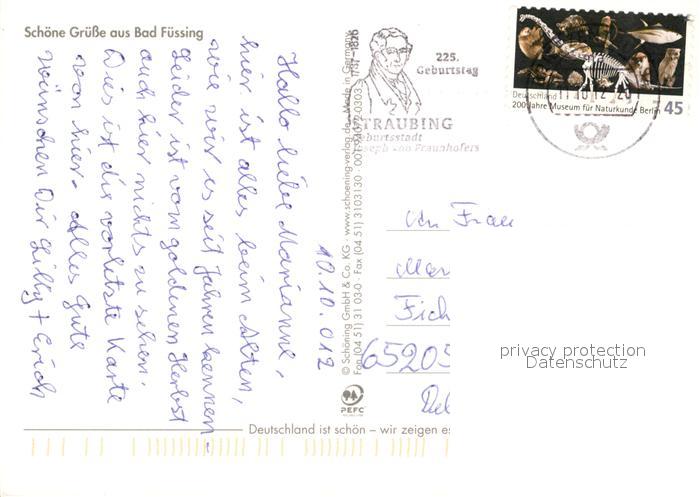 Schöne Grüße aus Bad Füssing
10.10.012
Hallo liebe Marianne,
hier ist alles beim Alten,
wie wir es seit Jahren kennen-
Leider ist vom goldenen Herbst
auch hier nichts zu sehen.
Dies ist die vorletzte Karte
von hier. Alles Gute
wünschen Dir Lilly + Erich
© Schöning GmbH & Co. KG - www.schoening-verlag.de - Made in Germany
Fon (04 51) 31 03-0 · Fax (04 51) 3103130
PEFC
1787-1826
225.
Geburtstag
STRAUBING
Geburtsstadt
Joseph von Fraunhofers
Deutschland
200 Jahre Museum für Naturkunde Berlin
45
11.10.12-20
An Frau
Mar
Fich
65205
privacy protection
Datenschutz
Deutschland ist schön – wir zeigen es